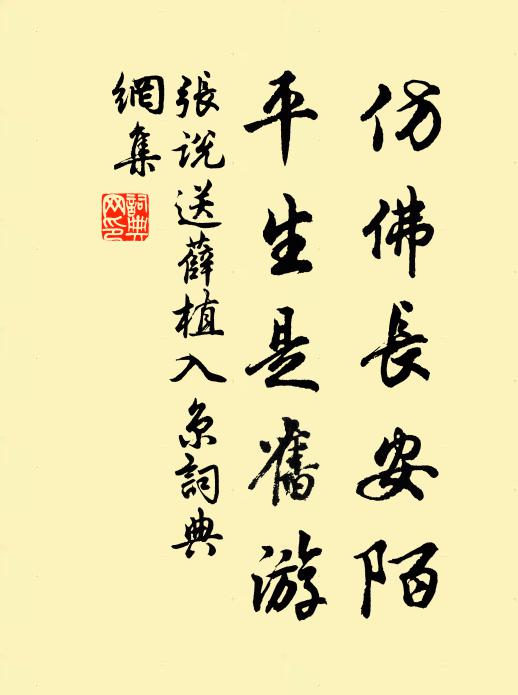 仿佛長安陌
平生是舊游
張說送薛植入京詞典
網集
詞典
网印